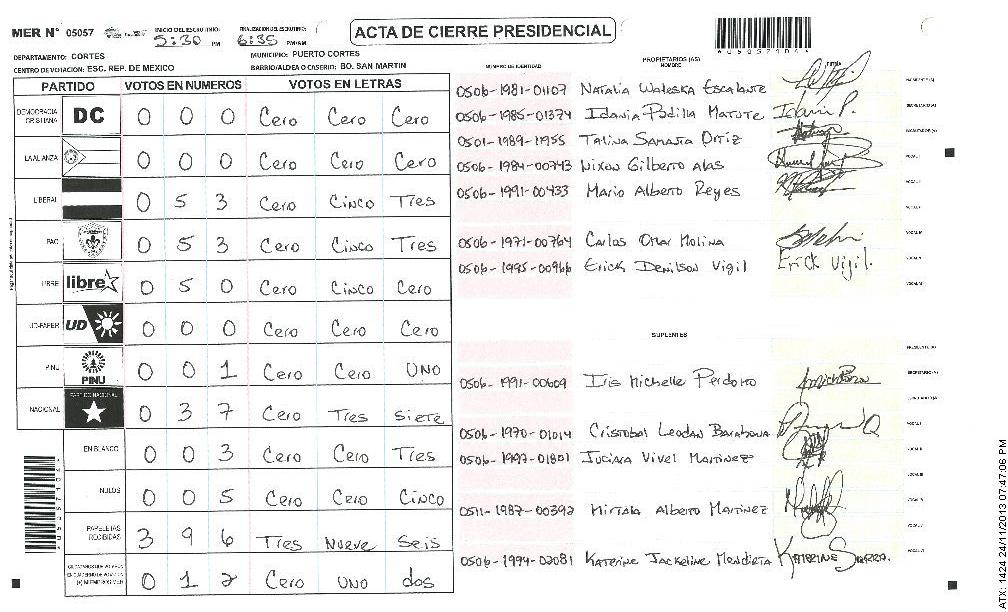 MER Nº 05057 INICIO DEL ESCRUTINIO: 5:30 PM FINALIZACION DEL ESCRUTINIO: 6:35 PM/AM
ACTA DE CIERRE PRESIDENCIAL
DEPARTAMENTO: CORTES MUNICIPIO: PUERTO CORTES
CENTRO DE VOTACION: ESC. REP. DE MEXICO BARRIO/ALDEA O CASERIO: BO. SAN MARTIN
PARTIDO VOTOS EN NUMEROS VOTOS EN LETRAS
DEMOCRACIA CRISTIANA DC 0 0 0 Cero Cero Cero
LA ALIANZA 0 0 0 Cero Cero Cero
LIBERAL 0 5 3 Cero Cinco Tres
PAC 0 5 3 Cero Cinco Tres
LIBRE libre 0 5 0 Cero Cinco Cero
UD-FAPER UD 0 0 0 Cero Cero Cero
PINU PINU 0 0 1 Cero Cero UNO
NACIONAL PARTIDO NACIONAL 0 3 7 Cero Tres Siete
EN BLANCO 0 0 3 Cero Cero Tres
NULOS 0 0 5 Cero Cero Cinco
PAPELETAS RECIBIDAS 3 9 6 Tres Nueve Seis
0 1 2 Cero UNO dos
NUMERO DE IDENTIDAD PROPIETARIOS (AS) NOMBRE FIRMA
0506-1981-01107 Natalia Waleska Escalante
0506-1985-01374 Idania Padilla Matute Idania P.
0501-1989-11955 Talina Samanta Ortiz
0506-1984-00743 Nixon Gilberto Alas
0506-1991-00433 Mario Alberto Reyes
0506-1971-00764 Carlos Omar Molina
0506-1995-00966 Erick Denilson Vigil Erick Vigil.
SUPLENTES
0506-1991-00609 Iris Michelle Perdomo
0506-1970-01014 Cristobal Leodan Barahona
0506-1997-01801 Juciara Vivel Martinez
0511-1987-00392 Mirtala Alberto Martinez
0506-1994-02081 Katerine Jackeline Mendieta
ATX: 1424 24/11/2013 07:47:06 PM